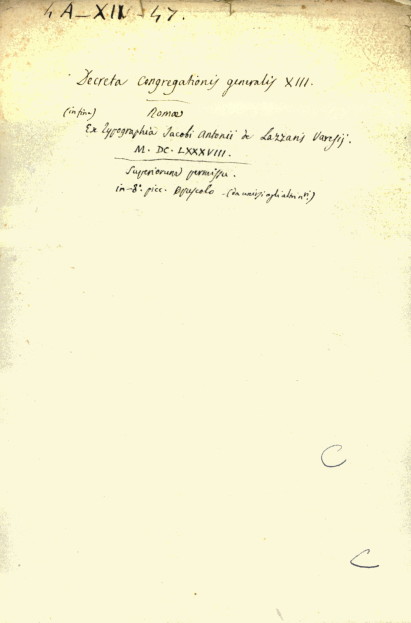 4A-XIV-47.
Decreta Congregationis generalis XIII.
(in fine) Romæ
Ex Typographia Jacobi Antonii de Lazzaris Varesij.
M. DC. LXXXVIII.
Superiorum permissu.
in-8°. picc. Opuscolo - (da unirsi agli altri)
C
C